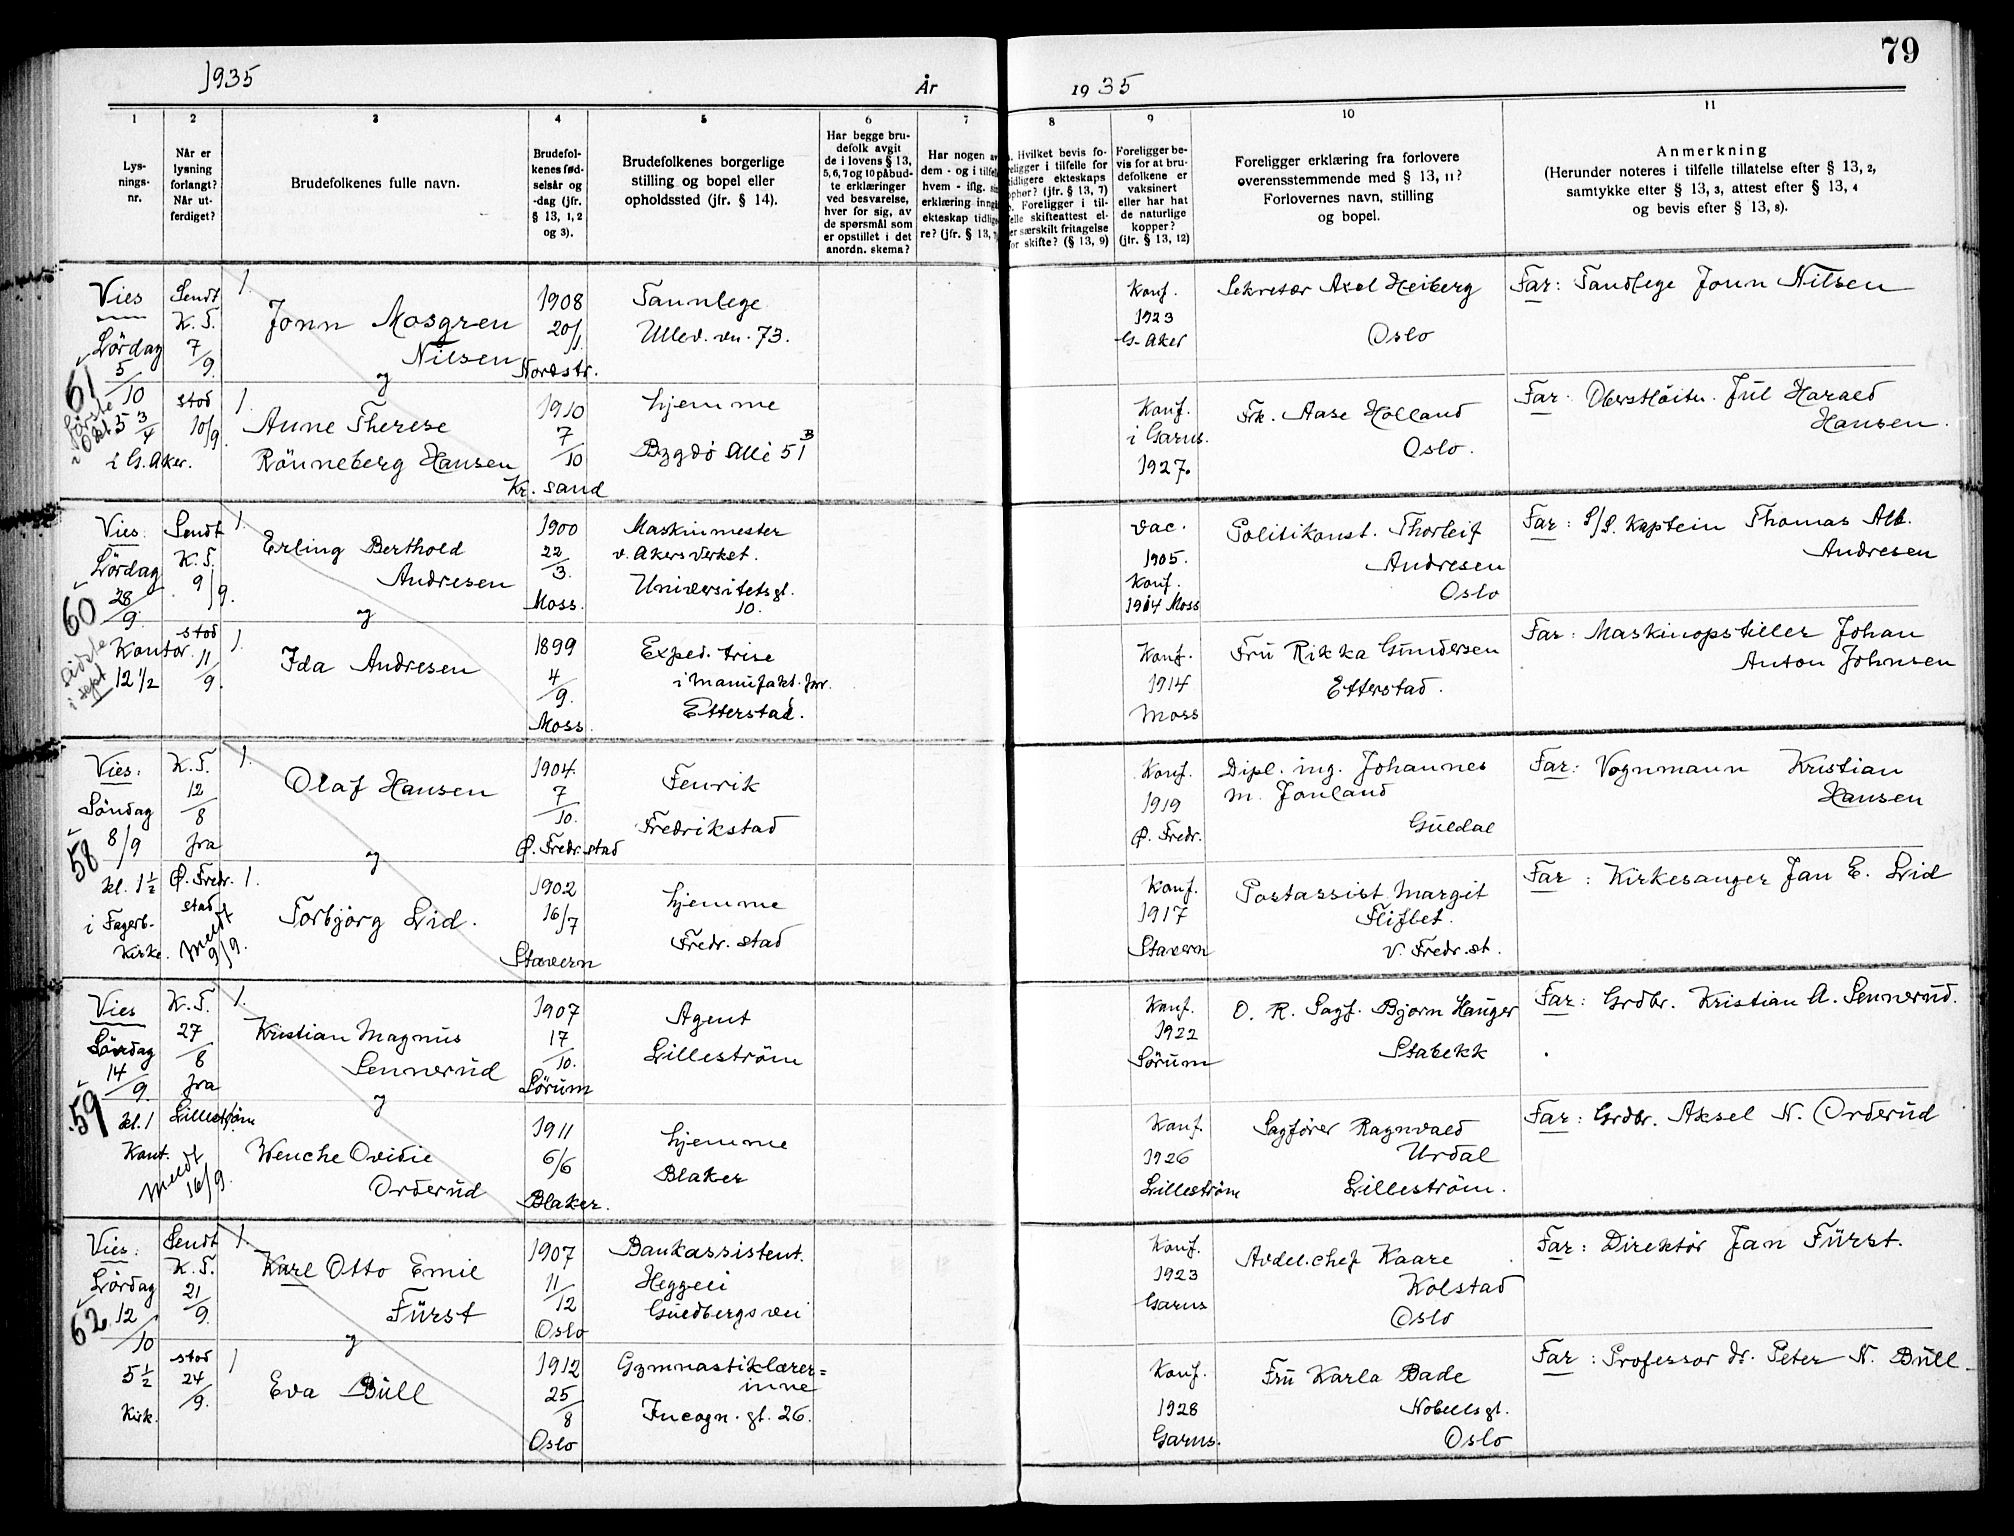 79
1935
År
1935
1
2
3
4
5
6
7
8
9
10
11
Lys-
nings-
nr.
Når er
lysning
forlangt?
Når ut-
ferdiget?
Brudefolkenes fulle navn.
Brudefol-
kenes fød-
selsår og
-dag (jfr.
§ 13, 1, 2
og 3).
Brudefolkenes borgerlige
stilling og bopel eller
opholdssted (jfr. § 14).
Har begge bru-
defolk avgit
de i lovens § 13,
5, 6, 7 og 10 påbud-
te erklæringer
ved besvarelse,
hver for sig, av
de spørsmål som
er opstillet i det
anordn. skema?
Har nogen av
dem - og i tilfelle
hvem - iflg.
erklæring inng
ekteskap tidlig
re? (jfr. § 13,
Hvilket bevis fo-
religger i tilfelle for
tidligere ekteskaps
ophør? (jfr. § 13, 7)
Foreligger i til-
felle skifteattest el-
er særskilt fritagelse
for skifte? (§ 13, 9)
Foreligger be-
vis for at bru-
defolkene er
vaksinert
eller har hat
de naturlige
kopper?
(jfr. § 13, 12)
Foreligger erklæring fra forlovere
overensstemmende med § 13, 11?
Forlovernes navn, stilling
og bopel.
Anmerkning
(Herunder noteres i tilfelle tillatelse efter § 13, 2,
samtykke efter § 13, 3, attest efter § 13, 4
og bevis efter § 13, 8).
61
Vies
Lördag
5/10
5 3/4
i G. Aker.
første
i Okt.
Sendt
K. T.
7/9.
stod
10/9.
1.
Jonn Mosgren
Nilsen
og
1908
20/1
Nordstr.
Tannlege
Ullev. vn. 73.
Konf.
1923
G. Aker
Sekretær Axel Heiberg
Oslo
Far: Tandlege Jonn Nilsen
1.
Anne Therese
Rönneberg Hansen
1910
7/10
Kr. sand
hjemme
Bygdö Allé 51 B
Konf.
i Garns.
1927.
Frk. Aase Holland
Oslo.
Far: Oberstløitn. Jul Harald
Hansen.
60
Vies.
Lördag
28/9.
Kontor.
12 1/2
sidste
i sept
Sendt
K. T.
9/9.
stod
11/9.
1.
Erling Berthold
Andresen
og
1900
22/3.
Moss.
Maskinmester
v. Akersverket.
Universitetsgt.
10.
vac.
1905.
Konf.
1914 Moss
Politikonst. Thorleif
Andresen
Oslo
Far: S/S. Kaptein Thomas Alb.
Andresen
1.
Ida Andresen
1899
4/9.
Moss.
Exped. trise
i manufakt. forr.
Etterstad.
Konf.
1914
Moss
Fru Rikka Gundersen
Etterstad.
Far: Maskinopstiller Johan
Anton Johnsen
58
Vies:
Søndag
8/9
kl. 1 1/2
i Fagerb.
Kirke.
K. T.
12/8
fra
Ø. Fredr.
stad
Meldt
9/9.
1.
Olaf Hansen
og
1904.
7/10.
Ø. Fredr.stad
Fenrik
Fredrikstad
Konf.
1919
Ø. Fredr.
Dipl. ing. Johannes
M. Jonland
Guldal
Far: Vognmann Kristian
Hansen
1.
Torbjörg Lid.
1902
16/7
Stavern
hjemme
Fredr. stad
Konf.
1917
Stavern
Postassist. Margit
Flifbet.
v. Fredr. st.
Far: Kirkesanger Jan E. Lid
59
Vies
Lördag
14/9.
kl. 1
Kont.
K. T.
27/8
fra
Lilleström
Meldt
16/9.
1.
Kristian Magnus
Sennerud
og
1907
17/10.
Sörum
Agent
Lilleström
Konf.
1922
Sörum
O. R. Sagf. Bjørn Hauger
Stabekk
Far: Grdbr. Kristian A. Sennerud.
1.
Wenche Ovidie
Orderud
1911
6/6
Blaker.
hjemme
Blaker
Konf.
1926
Lilleström
Sagfører Ragnvald
Urdal
Lilleström.
Far: Grdbr. Aksel N. Orderud
62
Vies:
Lördag
12/10
5 1/2
Kirk.
Sendt
K. T.
21/9.
stod
24/9.
1.
Karl Otto Emil
Fürst
og
1907
11/12
Oslo
Bankassistent.
Heggeli
Guldbergs vei
Konf.
1923
Garns
Avdel. chef Kaare
Kolstad
Oslo
Far: Direktør Jan Fürst.
1
Eva Bull
1912
25/8
Oslo
Gymnastiklærer=
inne
Incogn. gt. 26.
Konf.
1928
Garns.
Fru Karla Bade
Nobelsgt.
Oslo
Far: Professor dr. Peter N. Bull